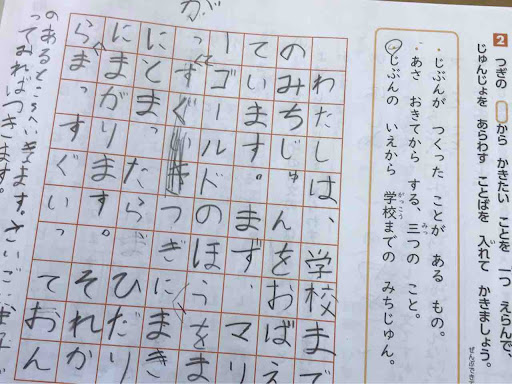 2 つぎの から かきたい ことを 一つ えらんで、
じゅんじょを あらわす ことばを 入れて かきましょう。
・じぶんが つくった ことが ある もの。
・あさ おきてから する、三つの こと。
・じぶんの いえから 学校までの みちじゅん。
がっこう
みっ
わたしは、学校まで
のみちじゅんをおばえ
ています。まず、マリ
ーゴールドのほうをま
っすぐいきつぎにまき
にとまったら、ひだり
にまがります。それか
らまっすぐいっておん
のあるところへいきます。さいご
ってみればつきます。